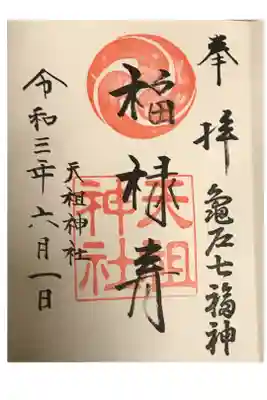 奉拝
亀戸七福神
福禄寿
天祖
神社
天祖神社
令和三年六月一日